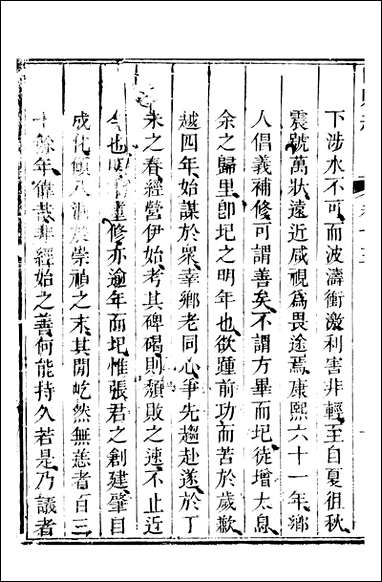 下涉水不可而波濤衝激利害非輕至自夏徂秋
震號萬狀遠近咸視為畏途焉康熙六十一年鄉
人倡義補修可謂善矣不謂方畢而圮徒增太息
余之歸里卽圮之明年也欲踵前功而苦於歲歉
越四年始謀於眾幸鄉老同心爭先趨赴遂於丁
未之春經營伊始考其碑碣則頽敗之速不止近
今也明 重修亦逾年而圮惟張君之創建肇自
成化 崇禎之末其閒屹然無恙者百三
十餘年 非經始之善何能持久若是乃議者